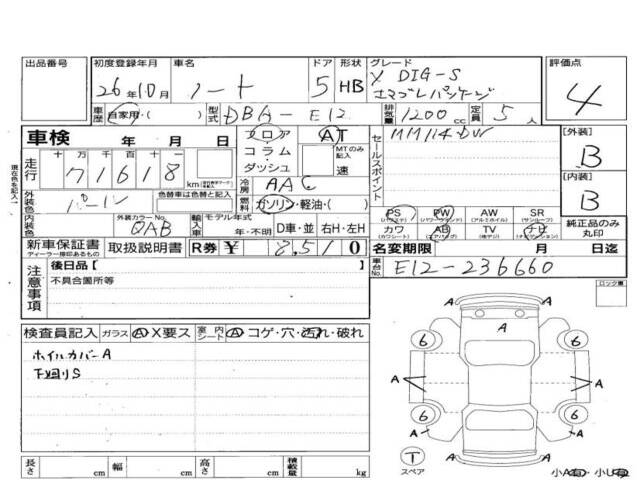 出品番号
初度登録年月
26年10月
車名
ノート
ドア
5
形状
HB
グレード
X DIG-S
エマブレパッケージ
評価点
4
車歴
自家用・( )
型式
DBA-E12
排気量
1200 cc
定員
5 人
車検
年 月 日
フロア
コラム
ダッシュ
AT
MTのみ記入
速
セールスポイント
MM114DW
[外装]
B
[内装]
B
現在色を記入
走行
十万 万 千 百 十
71618
km
冷房
AAC
外装色
色替車は色替と記入
パール
燃料
ガソリン・軽油・( )
PS
(パワステ)
PW
(パワーウインド)
AW
(アルミホイル)
SR
(サンルーフ)
カワ
(カワシート)
AB
(エアバッグ)
TV
ナビ
純正品のみ
丸印
内装色
外装カラーNo.
QAB
輸入車
モデル年式
年・不明
D車・並
右H・左H
新車保証書
ディーラー捺印あるもの
取扱説明書
R券
¥
8510
名変期限
月 日迄
車台No.
E12-236660
注意事項
後日品[ ]
不具合箇所等
ロック書
検査員記入
ガラス
A・X要ス
室内
シート
A・コゲ・穴・汚れ・破れ
ホイルカバーA
下廻りS
A
6
6
A
A
A
A
6
6
A
A
T
スペア
小A有・小U有
長さ
cm
幅
cm
高さ
cm
積載量
kg